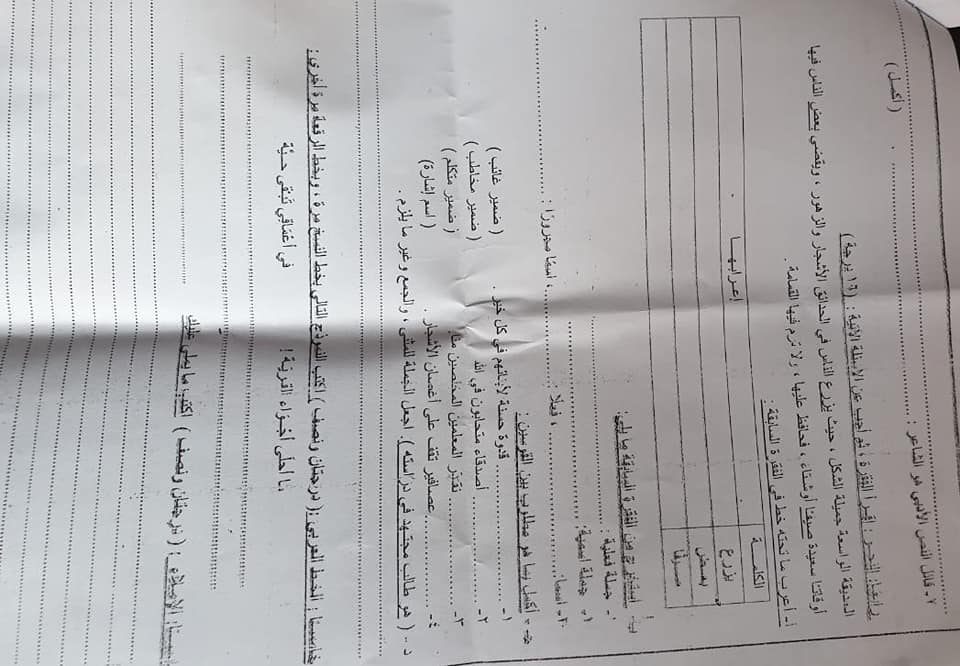 ٧- قائل النص الأدبي هو الشاعر : ....................
( أكمل )
رابعاً: النحو: اقرأ الفقرة ، ثم أجب عن الأسئلة الآتية : (١٦ درجة )
الحديقة الواسعة جميلة الشكل ، حيث يزرع الناس في الحدائق الأشجار والزهور ، ويقضي بعض الناس فيها
أوقاتنا سعيدة صيفاً أو شتاء ، فحافظ عليها ، ولا ترمِ فيها القمامة .
أ- أعرب ما تحته خط في الفقرة السابقة :
الكلمة
إعرابها
يزرع
بعض
صيفاً
ب- استخرج من الفقرة السابقة ما يلي:
١- جملة فعلية
٢- جملة اسمية:
٣- اسما ............ ، فعلاً ............ ، اسما مجرورًا : ............
جـ - أكمل بما هو مطلوب بين القوسين :
١- ............ قدوة حسنة لأبنائهم في كل خير . ( ضمير غائب )
٢- ............ أصدقاء متحابون في الله ( ضمير مخاطب )
٣- ............ نقدّر المعلمين المخلصين ( ضمير متكلم )
٤- ............ عصافير تقف على أغصان الأشجار . (اسم إشارة)
د - ( هو طالب مجتهد في دراسته ). اجعل الجملة للمثنى ، والجمع وغير ما يلزم .
خامسا : الخط العربي :( درجتان ونصف ) اكتب النموذج التالي بخط النسخ مرة ، وبخط الرقعة مرة أخرى :
ما أحلى أجواء القرية !
في أعماقي تبقى حيّة
سادسا: الإملاء : ( درجتان ونصف ) اكتب ما يملى عليك